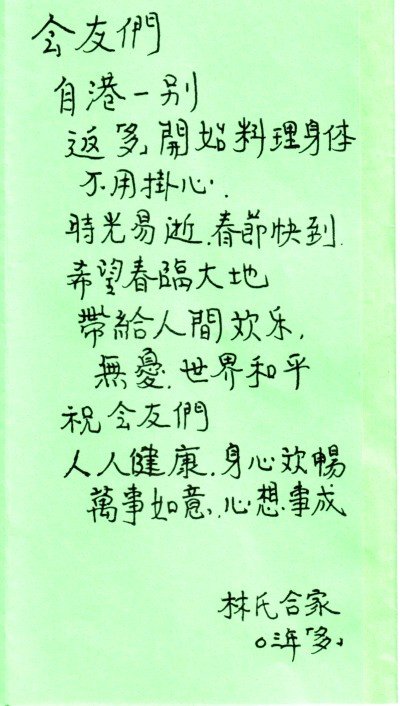 会友們
自港一别
返「多」開始料理身体
不用掛心.
時光易逝.春節快到.
希望春臨大地
帶給人間欢乐,
無憂.世界和平
祝会友們
人人健康.身心欢暢
萬事如意、心想事成
林氏合家
〇三年「多」